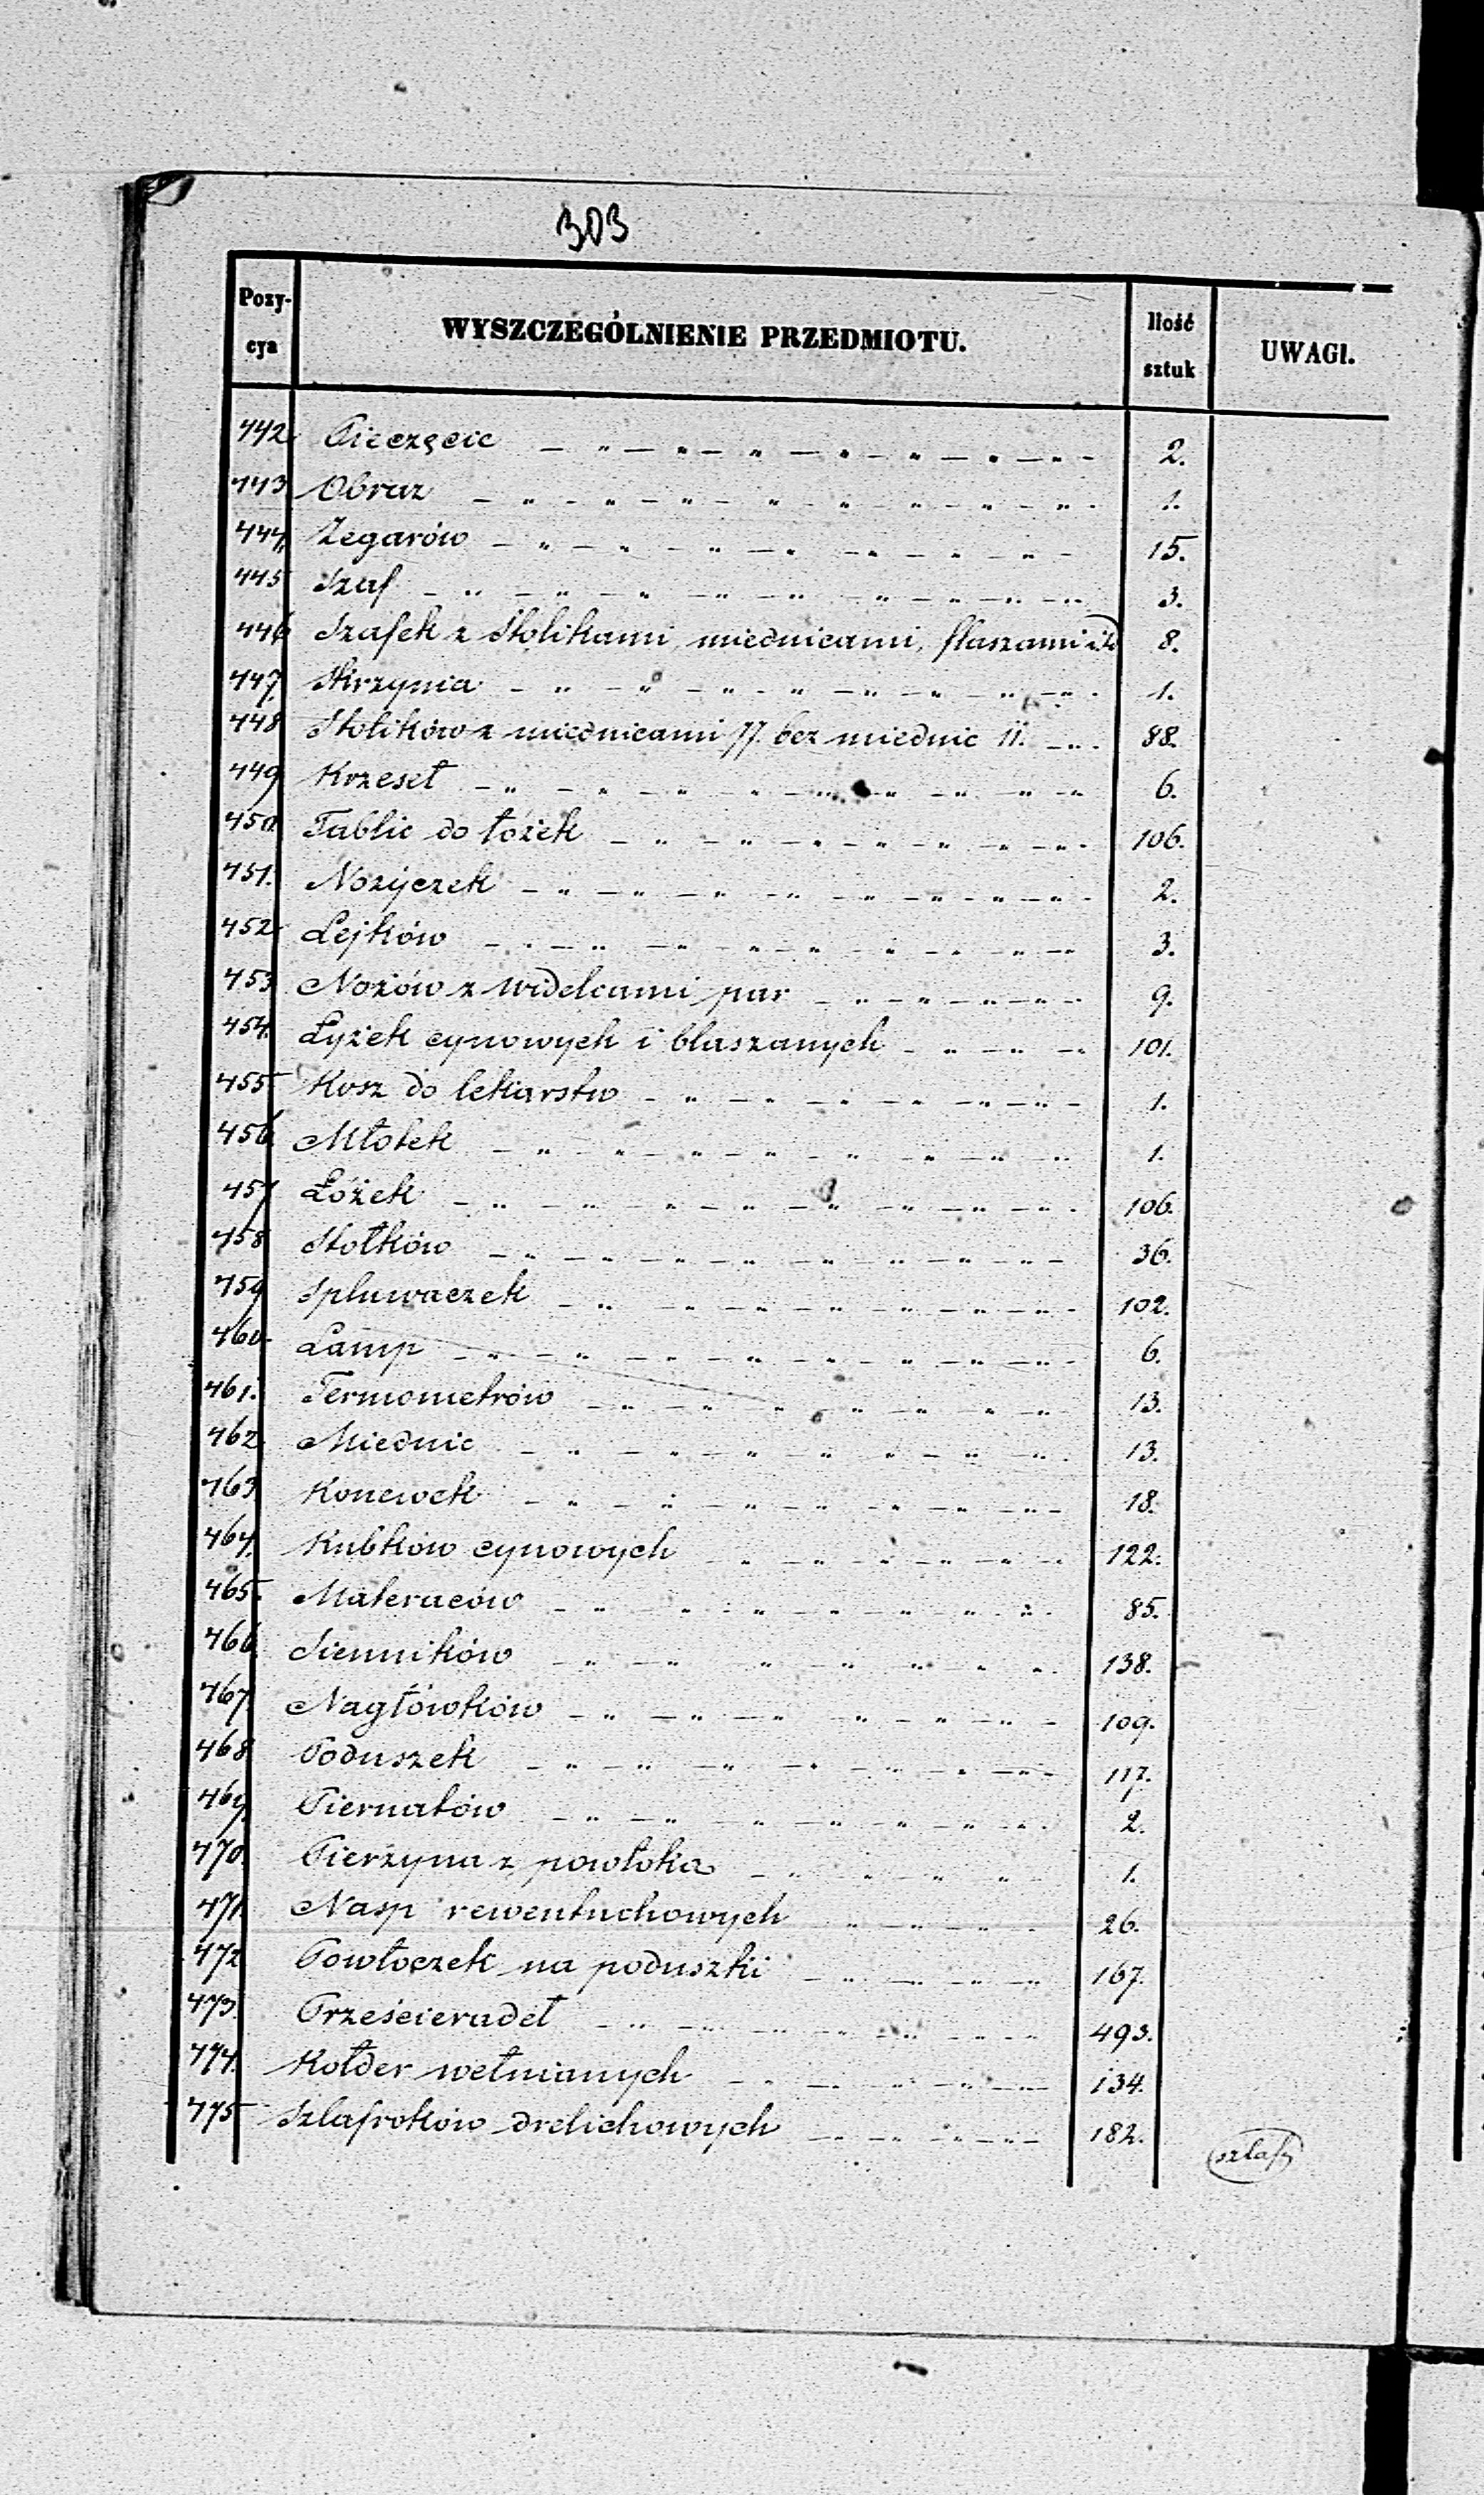 303
Pozy- cya WYSZCZEGÓLNIENIE PRZEDMIOTU. Ilość sztuk UWAGI.
442. Pieczęcie 2.
443 Obraz 1.
444. Zegarów 15.
445 Szaf 3.
446 Szafek z stolikami, miednicami, flaszami itd 8.
447. Skrzynia 1.
448 Stolików z miednicami 77. bez miednic 11. 88.
449 Krzeseł 6.
450. Tablic do łóżek 106.
451. Nożyczek 2.
452. Lejków 3.
453 Nożów z widelcami par 9.
454. Łyżek cynowych i blaszanych 101.
455. Kosz do lekarstw 1.
456. Młotek 1.
457 Łóżek 106.
458 Stołków 36.
459 Spluwaczek 102.
460. Lamp 6.
461. Termometrów 13.
462. Miednic 13.
463. Konewek 18.
464. Kubków cynowych 122.
465. Materaców 85.
466. Sienników 138.
467. Nagłówków 109.
468 Poduszek 117.
469. Piernatów 2.
470. Pierzyna z powłoką 1.
471. Nasp rewentuchowych 26.
472 Powłoczek na poduszki 167.
473. Prześcieradeł 493.
474. Kołder wełnianych 134.
475 Szlafroków drelichowych 182.
szlaf